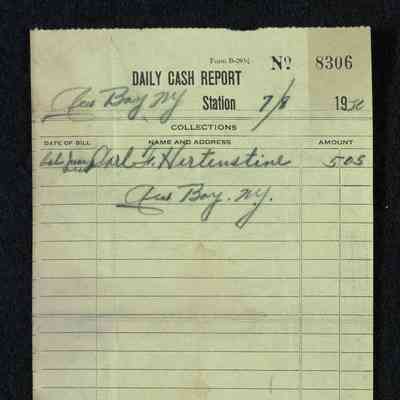 Form B-295½ Nº 8306
DAILY CASH REPORT
Alex Bay NY Station 7/8 1930
COLLECTIONS
DATE OF BILL NAME AND ADDRESS AMOUNT
Carl F. Hertenstine 5.05
Alex Bay. NY.